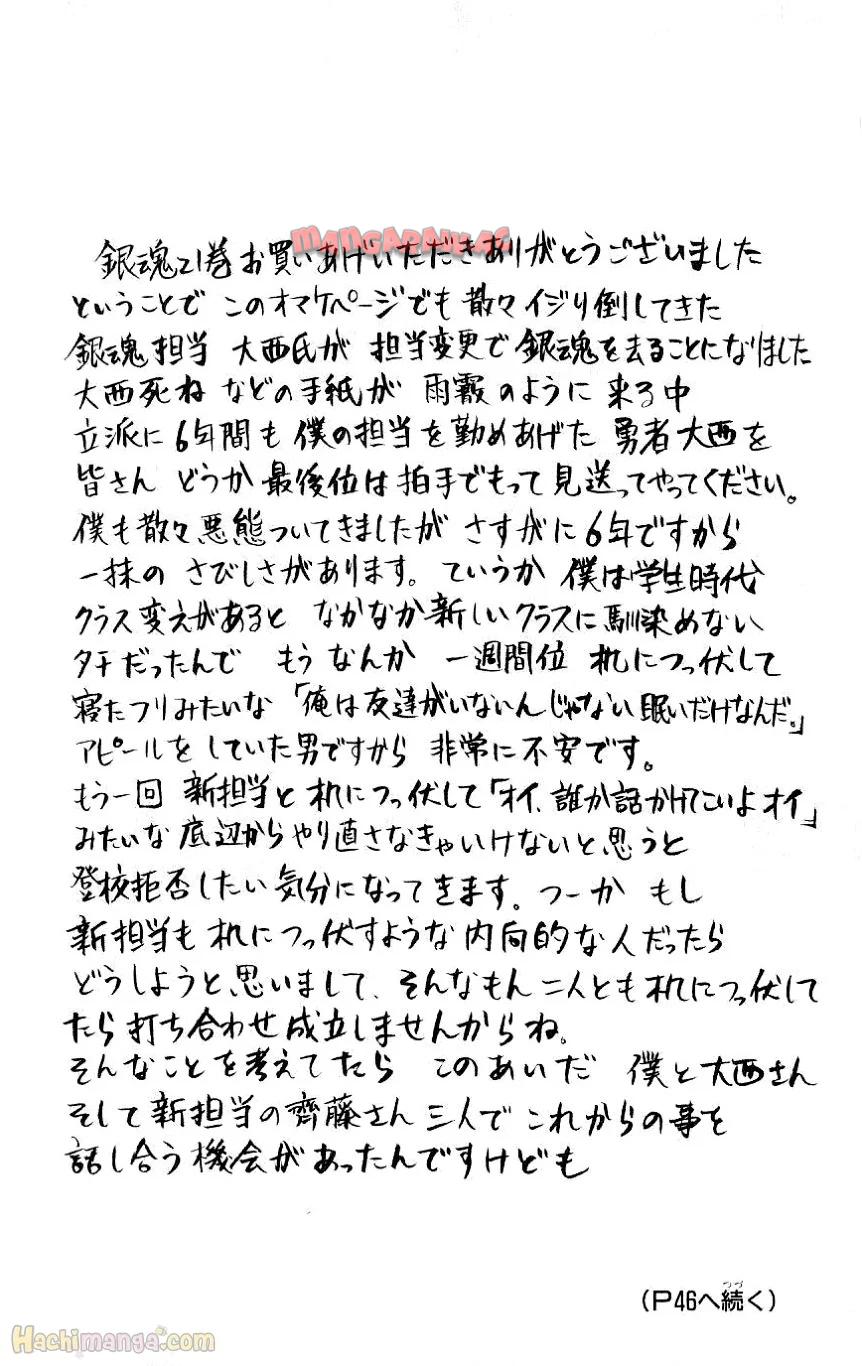 MANGARAW.AC
銀魂21巻お買いあげいただきありがとうございました
ということで このオマケページでも散々イジり倒してきた
銀魂担当 大西氏が 担当変更で銀魂を去ることになりました
大西死ね などの手紙が 雨霰のように 来る中
立派に 6年間も 僕の担当を勤めあげた 勇者大西を
皆さん どうか最後位は拍手でもって見送ってやってください。
僕も散々悪態ついてきましたが さすがに6年ですから
一抹の さびしさがあります。ていうか 僕は学生時代
クラス変えがあると なかなか新しいクラスに馴染めない
タチだったんで もう なんか 一週間位 机につっ伏して
寝たフリみたいな「俺は友達がいないんじゃない眠いだけなんだ。」
アピールをしていた男ですから 非常に不安です。
もう一回 新担当と机につっ伏して「オイ、誰か話かけてこいよオイ」
みたいな底辺からやり直さなきゃいけないと思うと
登校拒否したい気分になってきます。つーか もし
新担当も机につっ伏すような内向的な人だったら
どうしようと思いまして、そんなもん二人とも机につっ伏して
たら打ち合わせ成立しませんからね。
そんなことを考えてたら このあいだ 僕と大西さん
そして新担当の齊藤さん 三人で これからの事を
話し合う機会があったんですけども
(P46へ続く)
つづ
Hachimanga.com